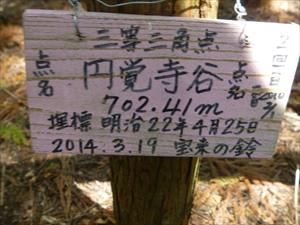 三等三角点
点名 円覚寺谷 点名
702.41m
埋標 明治22年4月25日
2014.3.19 宝来の鈴
2回目